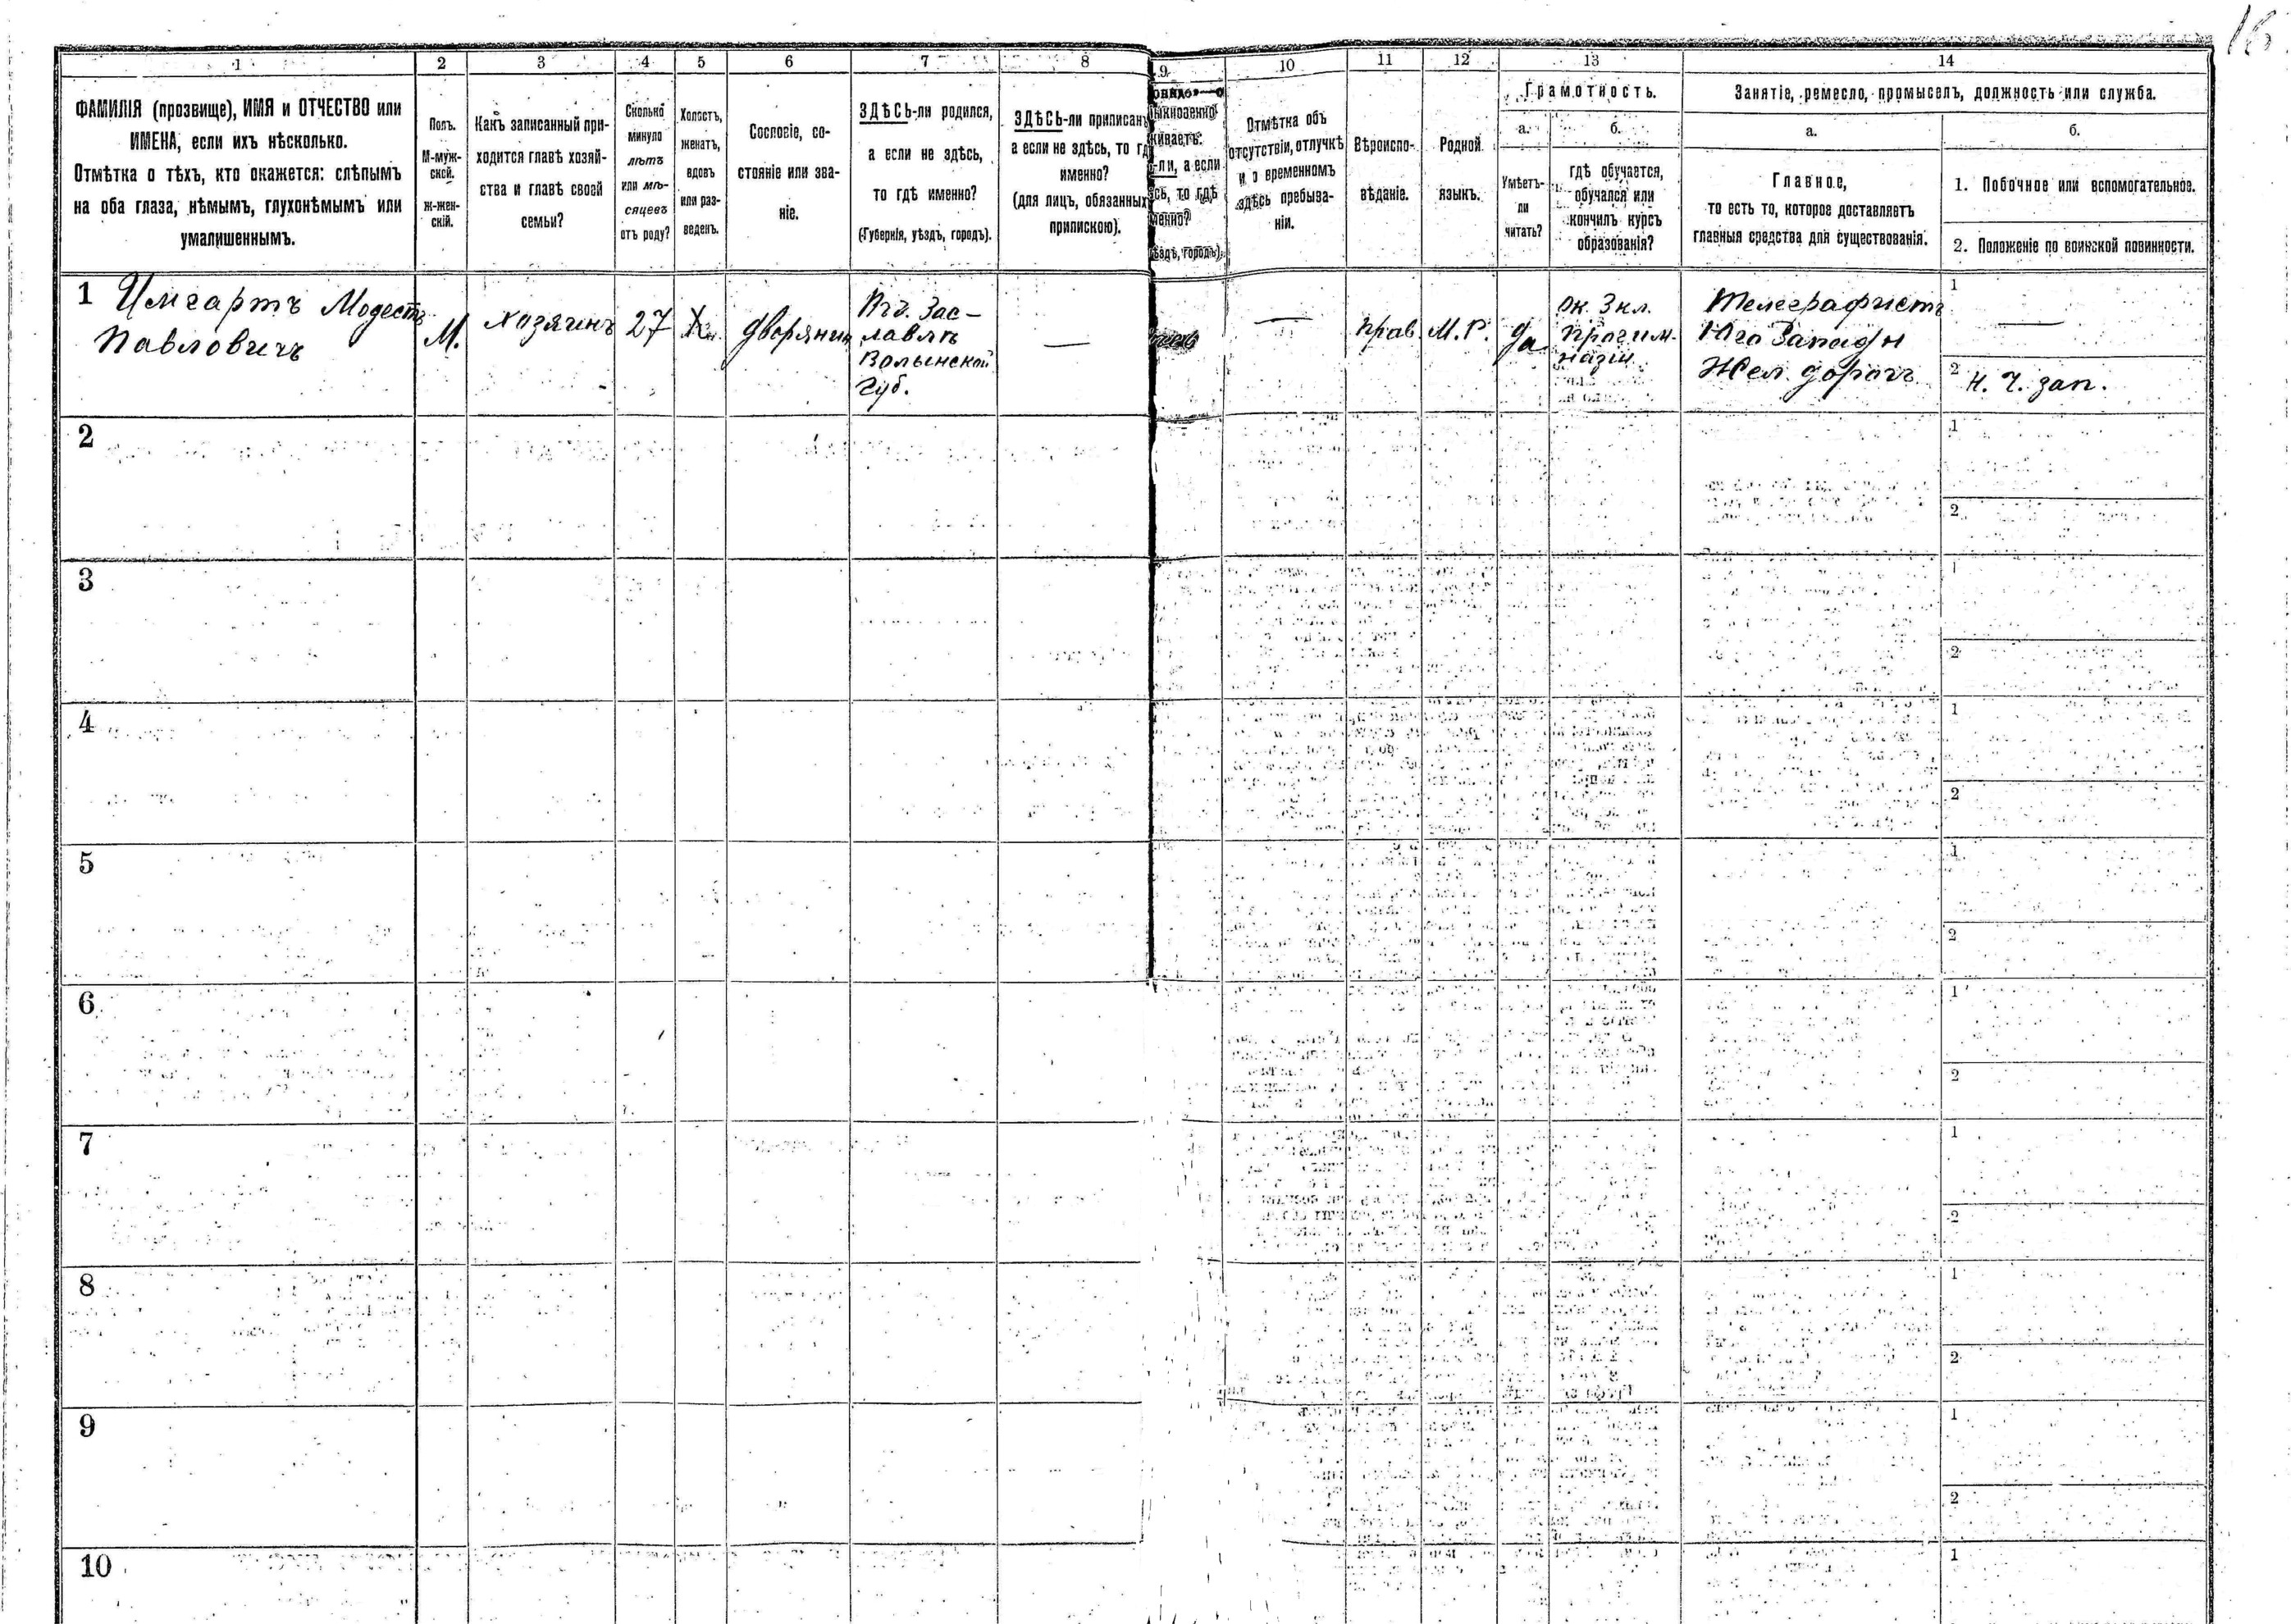 16
1 2 3 4 5 6 7 8
ФАМИЛІЯ (прозвище), ИМЯ и ОТЧЕСТВО или
ИМЕНА, если ихъ нѣсколько.
Отмѣтка о тѣхъ, кто окажется: слѣпымъ
на оба глаза, нѣмымъ, глухонѣмымъ или
умалишеннымъ.
Полъ.
М-муж-
ской.
ж-жен-
скій.
Какъ записанный при-
ходится главѣ хозяй-
ства и главѣ своей
семьи?
Сколько
минуло
лѣтъ
или мѣ-
сяцевъ
отъ роду?
Холостъ,
женатъ,
вдовъ
или раз-
веденъ.
Сословіе, со-
стояніе или зва-
ніе.
ЗДѢСЬ-ли родился,
а если не здѣсь,
то гдѣ именно?
(Губернія, уѣздъ, городъ).
ЗДѢСЬ-ли приписанъ
а если не здѣсь, то гд
именно?
(для лицъ, обязанныхъ
припискою).
9 10 11 12 13 14
живаетъ:
-ли, а если
сь, то гдѣ
менно?
ѣздъ, городъ).
Отмѣтка объ
отсутствіи, отлучкѣ
и о временномъ
здѣсь пребыва-
ніи.
Вѣроиспо-
вѣданіе.
Родной
языкъ.
Грамотность.
а. б.
Умѣетъ-
ли
читать?
гдѣ обучается,
обучался или
кончилъ курсъ
образованія?
Занятіе, ремесло, промыселъ, должность или служба.
а. б.
Главное,
то есть то, которое доставляетъ
главныя средства для существованія.
1. Побочное или вспомогательное.
2. Положеніе по воинской повинности.
1 Модестъ
Павловичъ
М.
хозяинъ
27
дворянин
Въ Зас-
лавлѣ
Волынской
губ.
—
—
прав.
М. Р.
да
Ок. 3 кл.
прогим-
назіи
Телеграфистъ
Юго Западн
Жел. дорогъ
1 —
2 Н. Ч. зап.
2 1
2
3 1
2
4 1
2
5 1
2
6 1
2
7 1
2
8 1
2
9 1
2
10 1